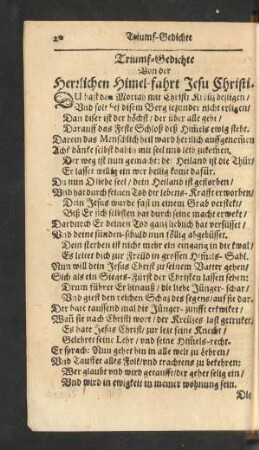 20 Triumf-Gedichte
Triumf-Gedichte
Von der
Herrlichen Himel-fahrt Jesu Christi.
DU hast dem Moriah mit Christi Kreüz
Und solt bei disem Berg iezunder nicht
Dan diser ist der höchst / der über alle geht /
Darauff das Feste Schloß deß Himels ewig steht.
Darein das Menschlich heil ward herrlich auff genomen
Ach! dänke selbst dahin mit seel und leib zukomen.
Der weg ist nun gemacht: der Heiland ist die Thür /
Er lasset willig ein wer heilig komt dafür.
Du nun O liebe seel / dein Heiland ist gestorben /
Und hat durch seinen Tod dir lebens-Kraft erworben /
Dein Jesus wurde fast in einem Grab versteckt /
Biß Er sich selbsten hat durch seine macht erwekt /
Dardurch Er deinen Tod ganz lieblich hat versüsset /
Und deine sünden-schuld nun föllig abgebüsset.
Dein sterben ist nicht mehr ein eingang in die kwal /
Es leitet dich zur Freüd in grossen Himels-Sahl.
Nun will dein Jesus Christ zu seinem Vatter gehen /
Sich als ein Sieges-Fürst der Christen lassen sehen:
Drum führet Er hinauß / die liebe Jünger-schar /
Und giest den reichen Schaz des segens / auf sie dar.
Der hate tausend mal die Jünger-zunfft erkwiket /
Wañ sie nach Christi wort / der Kreüzes last getruket /
Es hate Jesus Christ / zur leze seine Knecht /
Gelehret seine Lehr / und seine Himels-recht.
Er sprach: Nun gehet hin in alle welt zu lehren /
Und Tauffet alles Folk / und trachtens zu bekehren:
Wer glaubt und wird getaufft / der gehet selig ein /
Und wird in ewigkeit in meiner wohnung sein.
Die